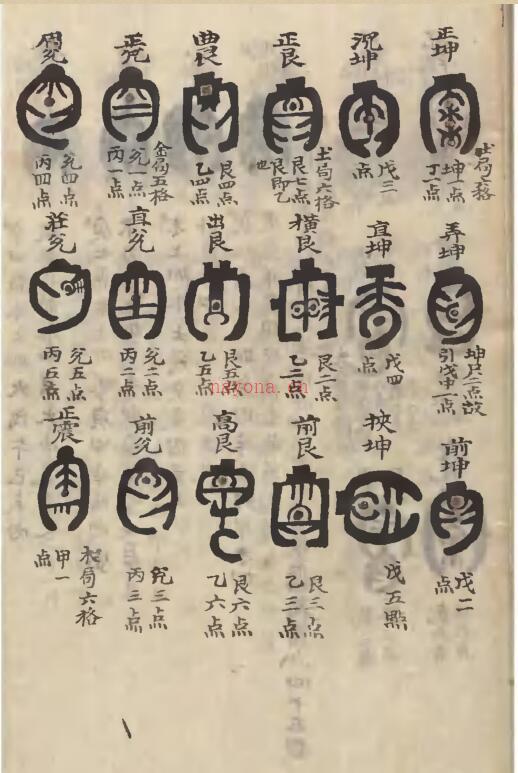 正坤
坤一点
丁一点
坤
戊三
点
正艮
土局六格
艮七点
艮即乙
也
艮四点
乙四点
正兊
金局五格
兊一点
丙一点
周兊
兊四点
丙四点
弄坤
坤只二点故
引戊申一点
宜坤
戊四
点
横艮
艮二点
乙二点
出艮
艮五点
乙五点
直兊
兊二点
丙二点
莊兊
兊五点
丙五点
前坤
戊二
点
挾坤
戊五點
前艮
艮三点
乙三点
高艮
艮六点
乙六点
前兊
兊三点
丙三点
正震
木局六格
甲一
点
nayona.cn